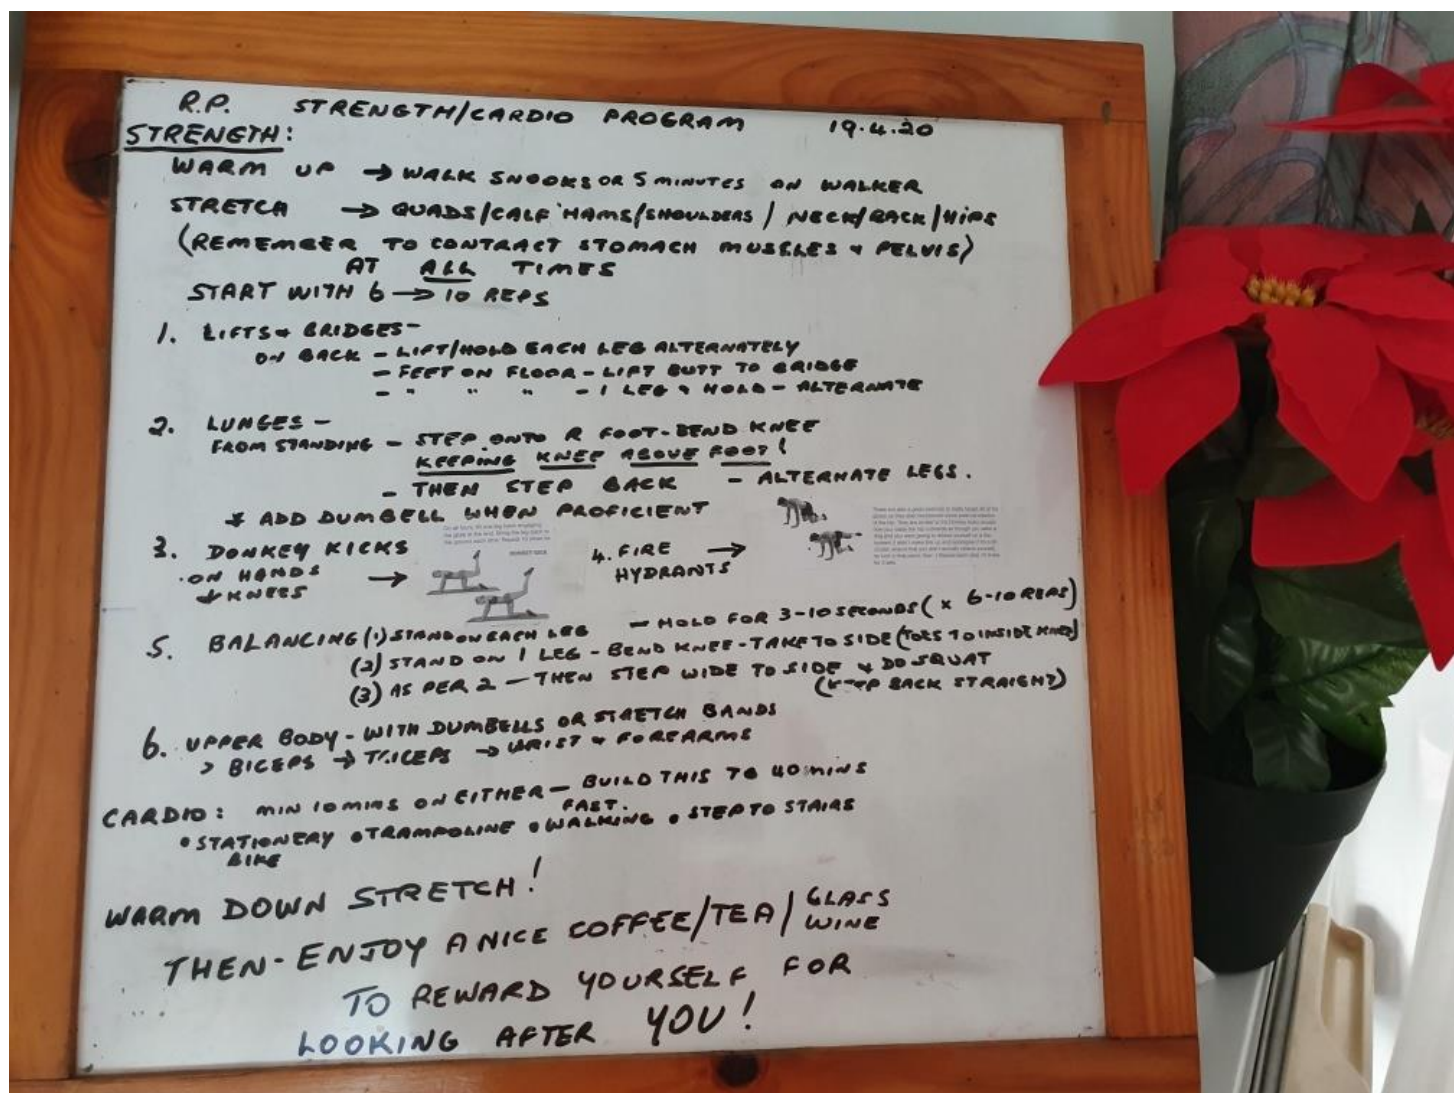 R.P. STRENGTH/CARDIO PROGRAM 19.4.20
STRENGTH:
WARM UP → WALK SNOOKS OR 5 MINUTES ON WALKER
STRETCH → QUADS/CALF HAMS/SHOULDERS/NECK/BACK/HIPS
(REMEMBER TO CONTRACT STOMACH MUSCLES & PELVIS)
AT ALL TIMES
START WITH 6 → 10 REPS
1. LIFTS & BRIDGES -
ON BACK - LIFT/HOLD EACH LEG ALTERNATELY
- FEET ON FLOOR - LIFT BUTT TO BRIDGE
- " " " - 1 LEG & HOLD - ALTERNATE
2. LUNGES -
FROM STANDING - STEP ONTO R FOOT - BEND KNEE
KEEPING KNEE ABOVE FOOT!
- THEN STEP BACK - ALTERNATE LEGS.
* ADD DUMBELL WHEN PROFICIENT
3. DONKEY KICKS
ON HANDS →
& KNEES
DONKEY KICK
4. FIRE →
HYDRANTS
5. BALANCING (1) STAND ON EACH LEG - HOLD FOR 3-10 SECONDS (x 6-10 REPS)
(2) STAND ON 1 LEG - BEND KNEE - TAKE TO SIDE (TOES TO INSIDE KNEE)
(3) AS PER 2 - THEN STEP WIDE TO SIDE & DO SQUAT
(KEEP BACK STRAIGHT)
6. UPPER BODY - WITH DUMBELLS OR STRETCH BANDS
> BICEPS → TRICEPS → WRIST & FOREARMS
CARDIO: MIN 10 MINS ON EITHER - BUILD THIS TO 40 MINS
FAST.
• STATIONERY • TRAMPOLINE • WALKING • STEP TO STAIRS
BIKE
WARM DOWN STRETCH!
THEN - ENJOY A NICE COFFEE/TEA/GLASS
WINE
TO REWARD YOURSELF FOR
LOOKING AFTER YOU!